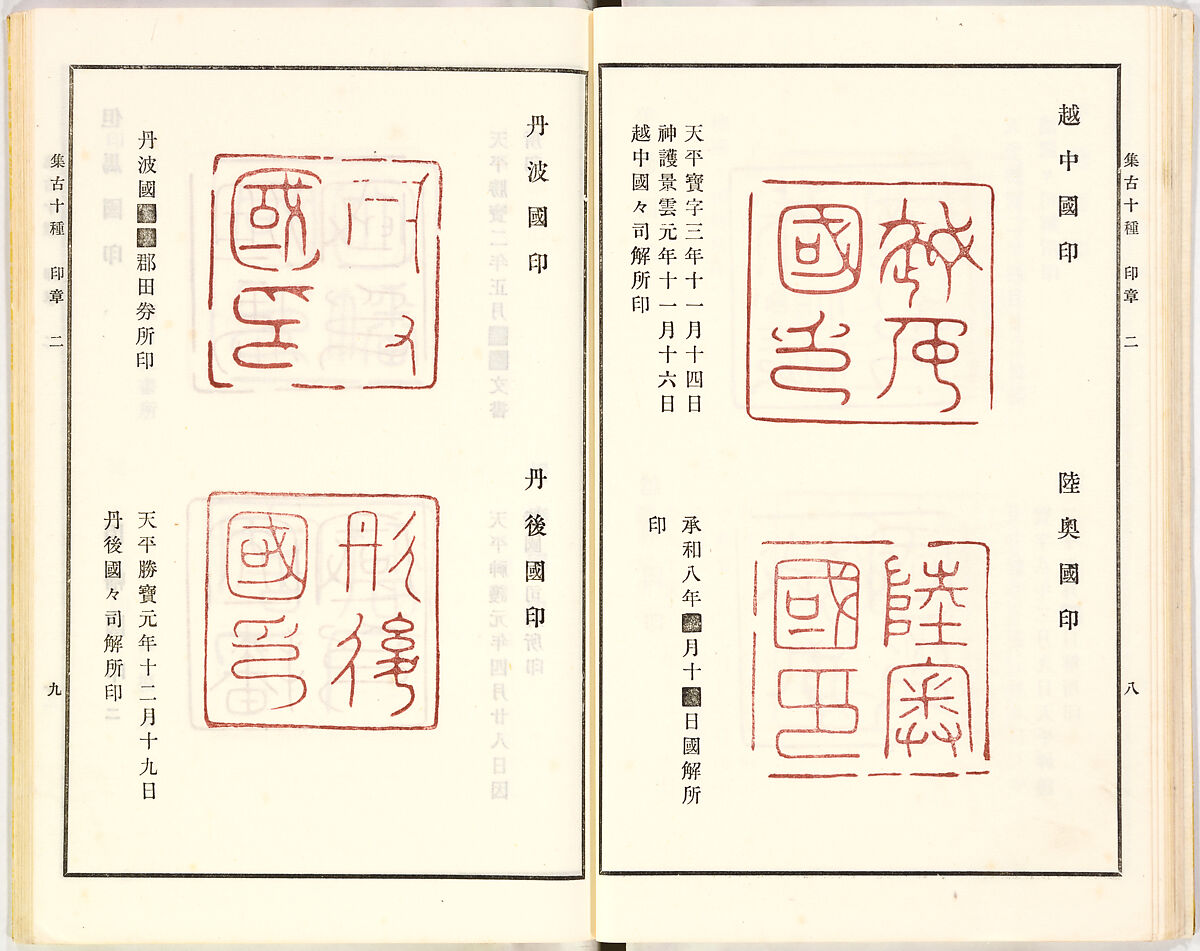 集古十種 印章 二
八
越中國印
越夜
國印
天平寶字三年十一月十四日
神護景雲元年十一月十六日
越中國々司解所印
陸奥國印
陸奥
國印
承和八年
月十
日國解所
印
丹波國印
丹波
國印
丹波國
郡田劵所印
丹後國印
丹後
國印
天平勝寶元年十二月十九日
丹後國々司解所印
集古十種 印章 二
九